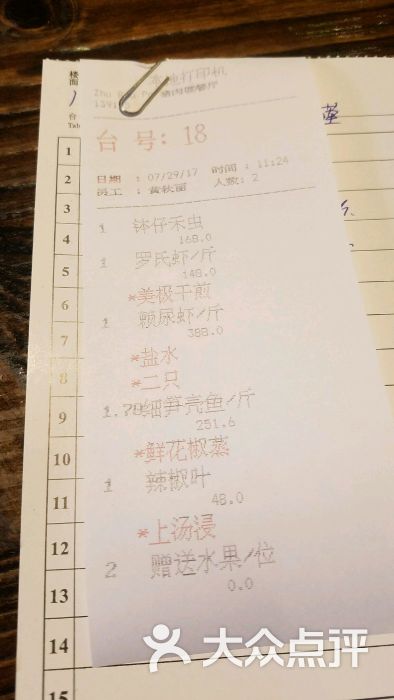 楼面
台
Tab
厨房打印机
猪肉煲餐厅
台 号: 18
日期 : 07/29/17 时间 : 11:24
员工 : 黄秋丽 人数: 2
1 钵仔禾虫
168.0
1 罗氏虾/斤
148.0
*美极干煎
1 赖尿虾/斤
388.0
*盐水
*二只
1.70细笋壳鱼/斤
251.6
*鲜花椒蒸
1 辣椒叶
48.0
*上汤浸
2 赠送水果/位
0.0
1
2
3
4
5
6
7
8
9
10
11
12
13
14
15
大众点评